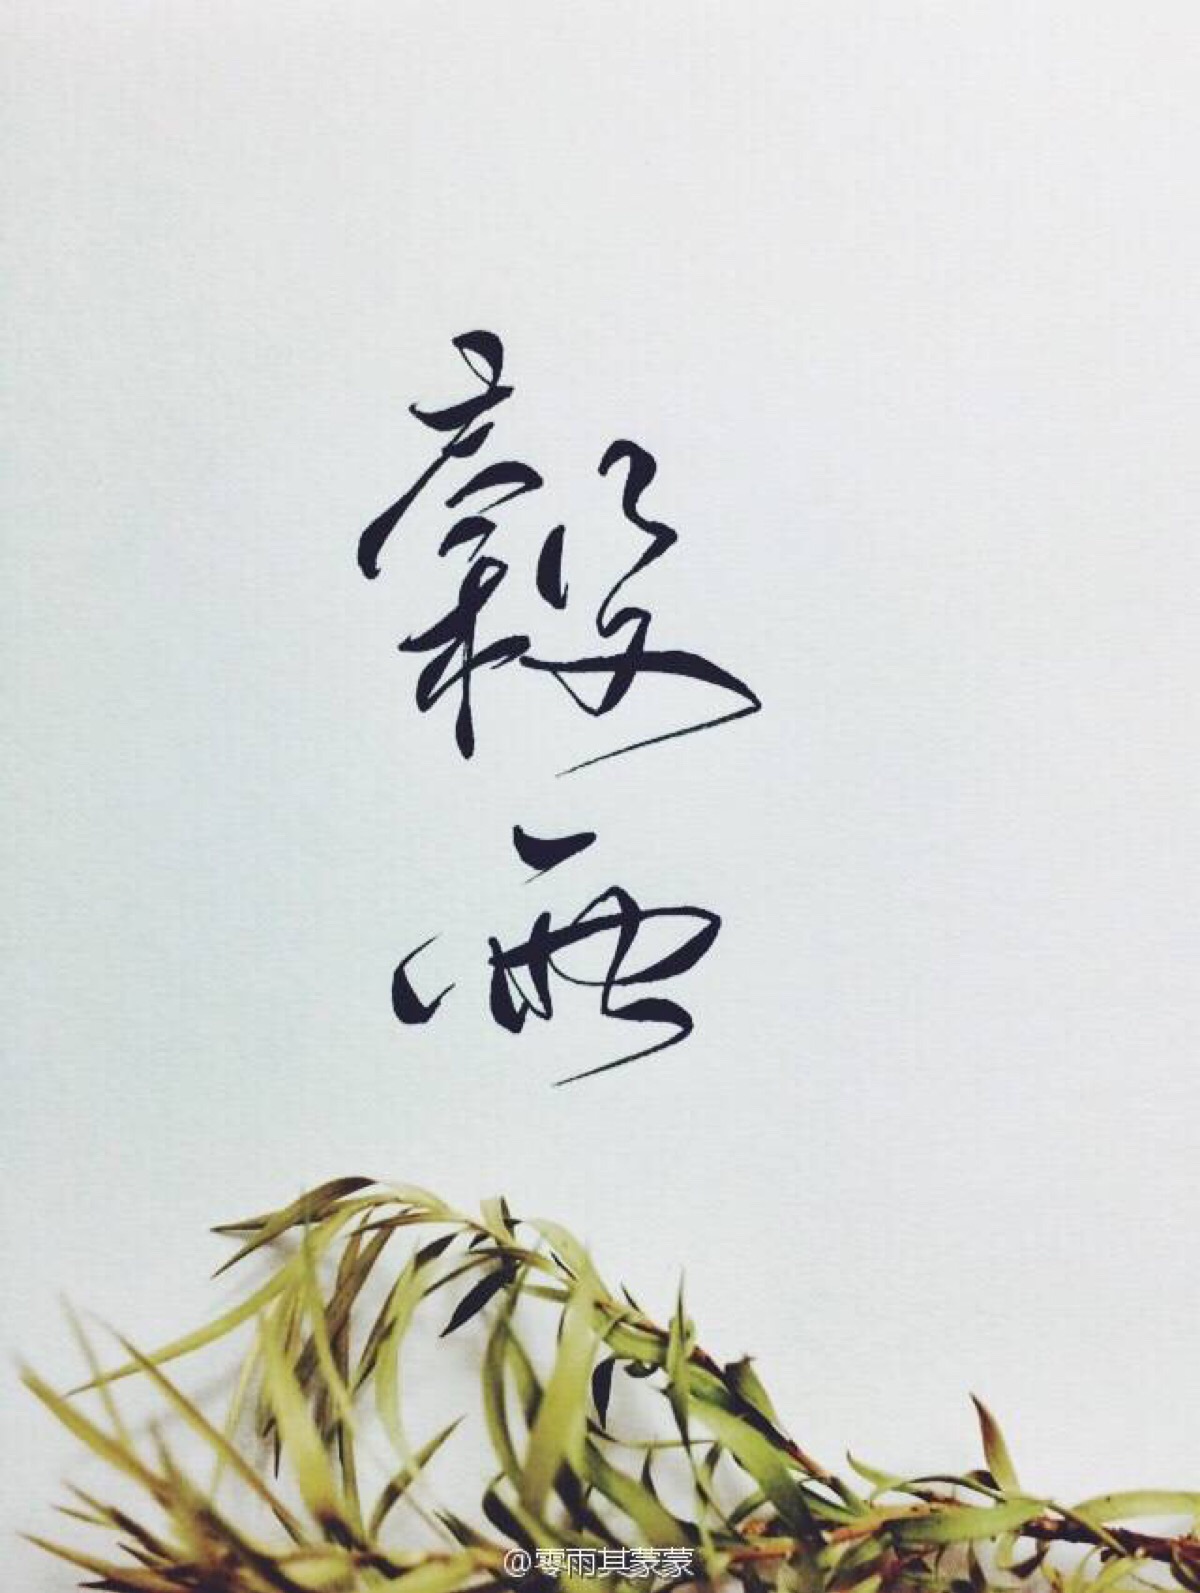 穀雨
@零雨其蒙蒙